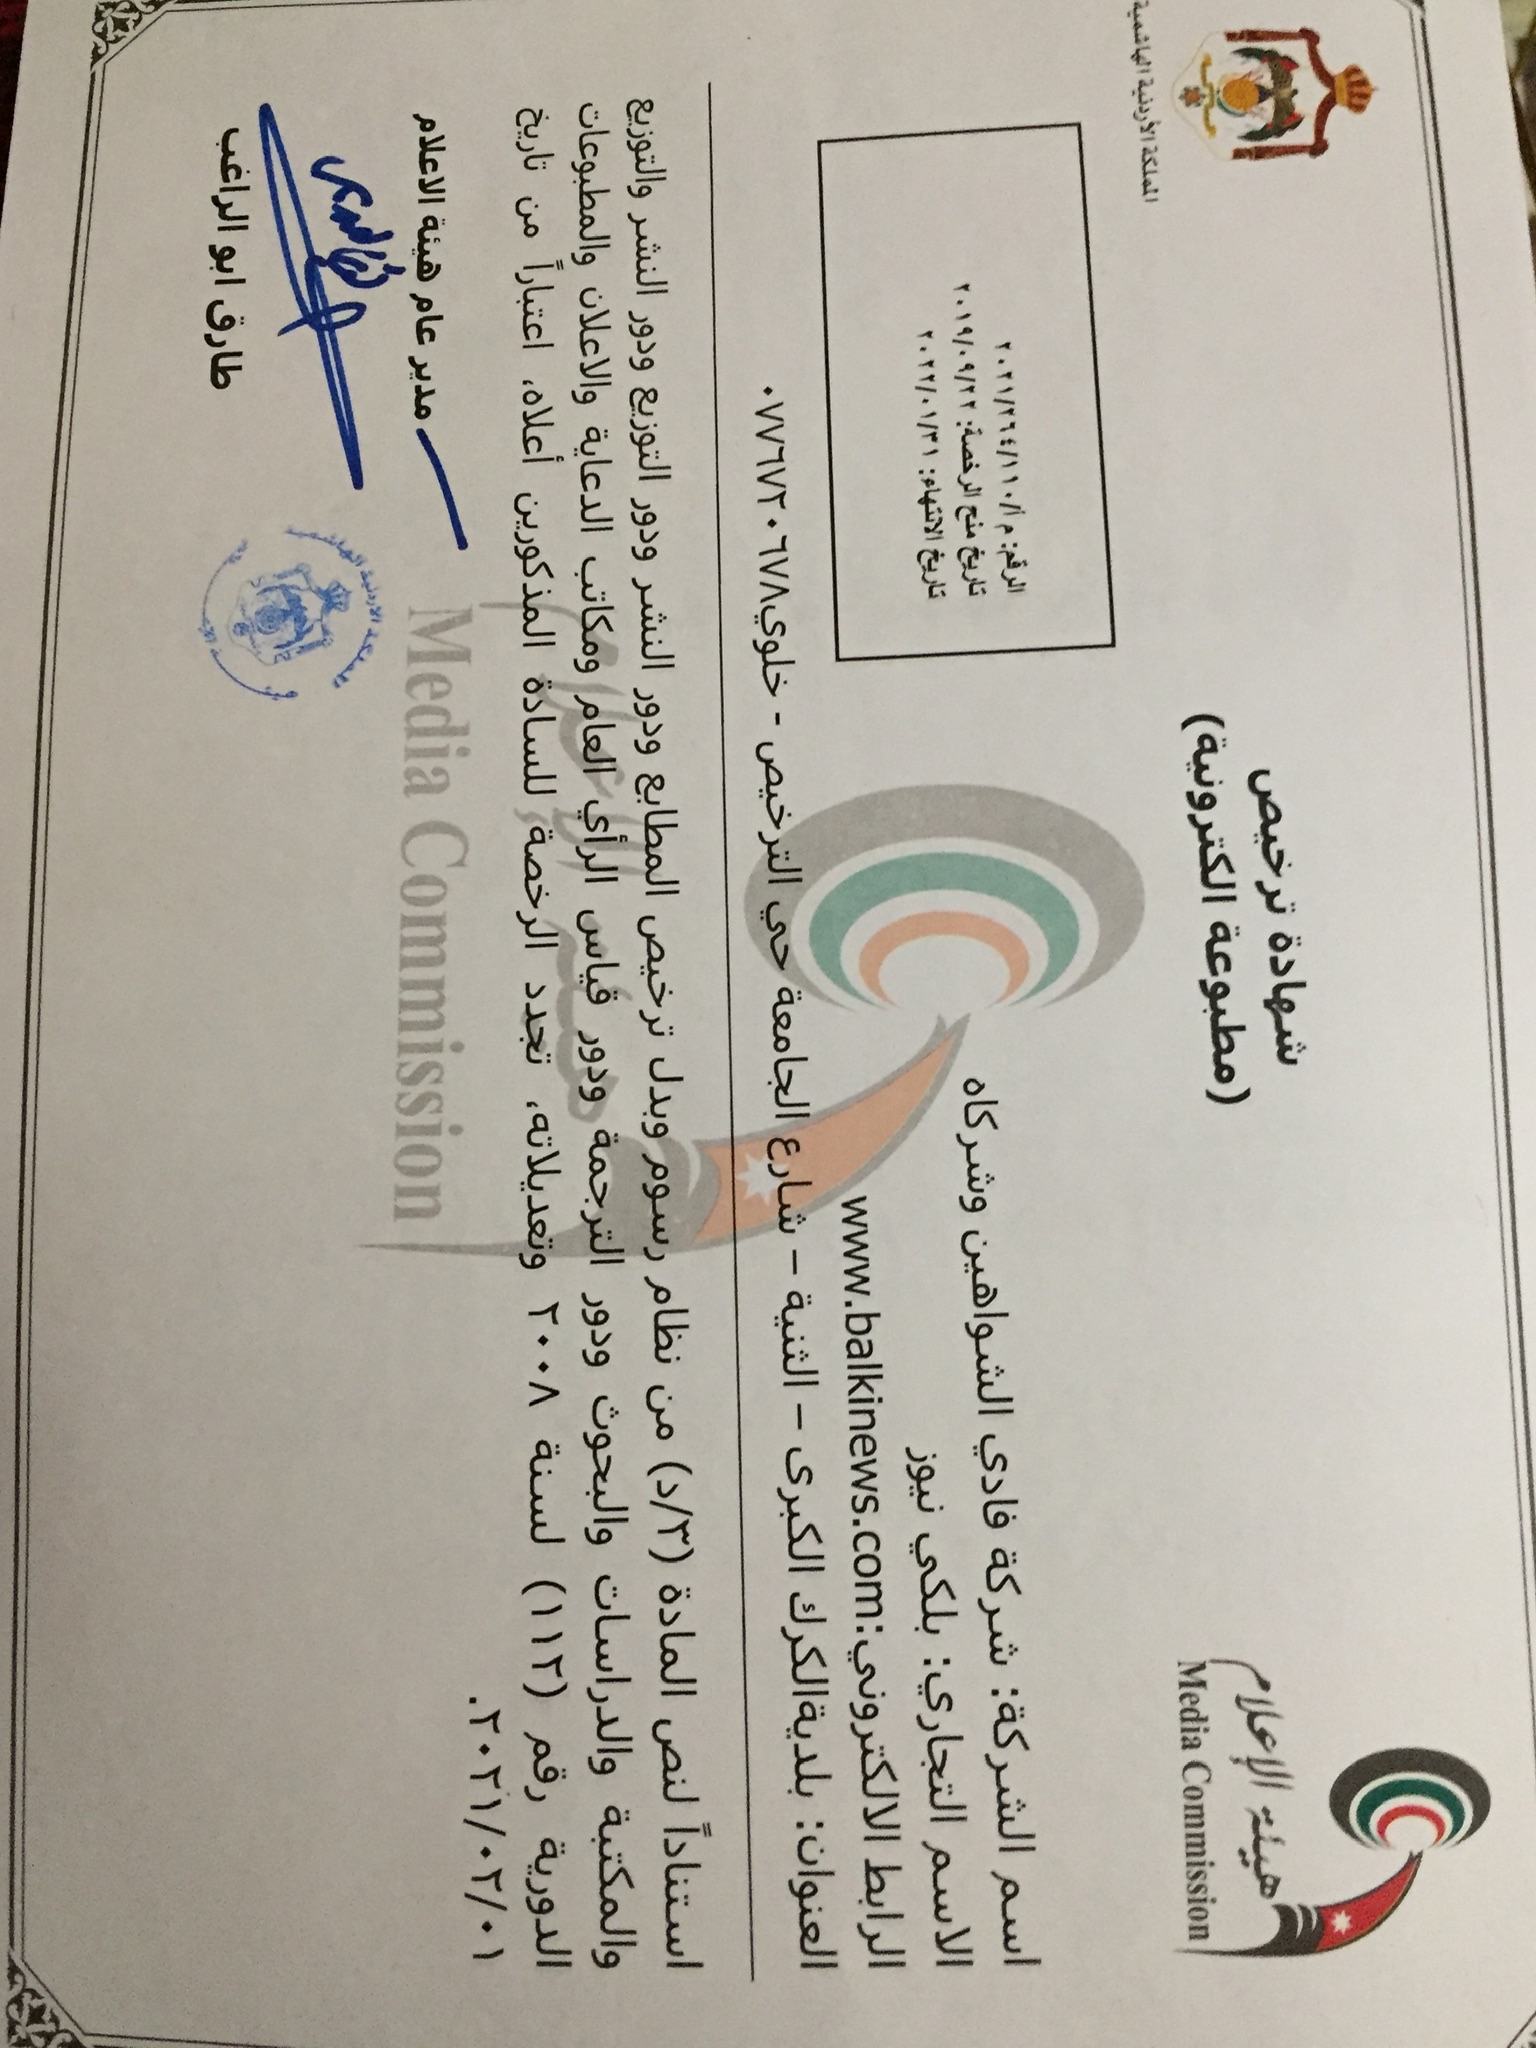 المملكة الأردنية الهاشمية
هيئة الإعلام
Media Commission
شهادة ترخيص
(مطبوعة الكترونية)
الرقم: م أ/٢٠٢١/٢٦٤/١١٠
تاريخ منح الرخصة: ٢٠١٩/٠٩/٢٢
تاريخ الانتهاء: ٢٠٢٢/٠١/٣١
اسم الشركة: شركة فادي الشواهين وشركاه
الاسم التجاري: بلكي نيوز
الرابط الالكتروني:www.balkinews.com
العنوان: بلديةالكرك الكبرى – الثنية – شارع الجامعة حي الترخيص - خلوي٠٧٧٦٧٣٠٦٧٨
استناداً لنص المادة (٣/د) من نظام رسوم وبدل ترخيص المطابع ودور النشر ودور التوزيع ودور النشر والتوزيع
والمكتبة والدراسات والبحوث ودور الترجمة ودور قياس الرأي العام ومكاتب الدعاية والاعلان والمطبوعات
الدورية رقم (١١٢) لسنة ٢٠٠٨ وتعديلاته، تجدد الرخصة للسادة المذكورين أعلاه، اعتباراً من تاريخ
٢٠٢١/٠٢/٠١.
هيئة الإعلام
Media Commission
مدير عام هيئة الاعلام
طارق ابو الراغب